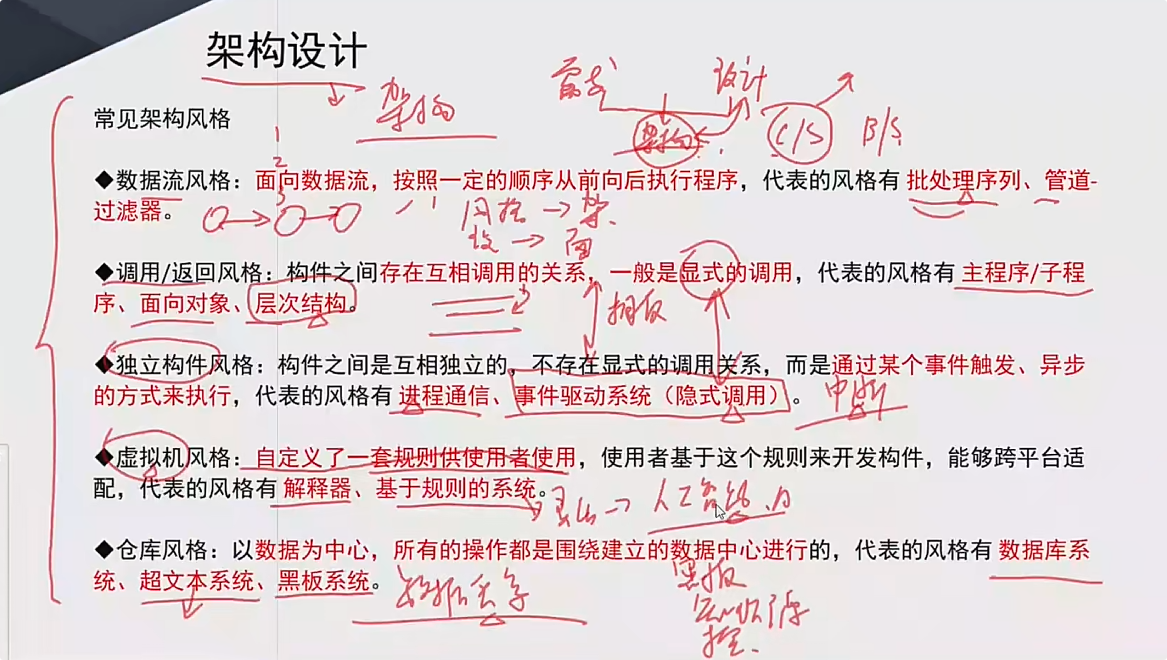 架构设计
架构
需求
设计
架构
C/S
B/S
常见架构风格
1
2
3
◆数据流风格：面向数据流，按照一定的顺序从前向后执行程序，代表的风格有 批处理序列、管道-
过滤器。
风格 → 架
◆调用/返回风格：构件之间存在互相调用的关系，一般是显式的调用，代表的风格有 主程序/子程
序、面向对象、层次结构。
相反
◆独立构件风格：构件之间是互相独立的，不存在显式的调用关系，而是通过某个事件触发、异步
的方式来执行，代表的风格有 进程通信、事件驱动系统（隐式调用）。
中断
◆虚拟机风格：自定义了一套规则供使用者使用，使用者基于这个规则来开发构件，能够跨平台适
配，代表的风格有 解释器、基于规则的系统。
→ 人工智能
◆仓库风格：以数据为中心，所有的操作都是围绕建立的数据中心进行的，代表的风格有 数据库系
统、超文本系统、黑板系统。
数据共享
黑板
知识源
控